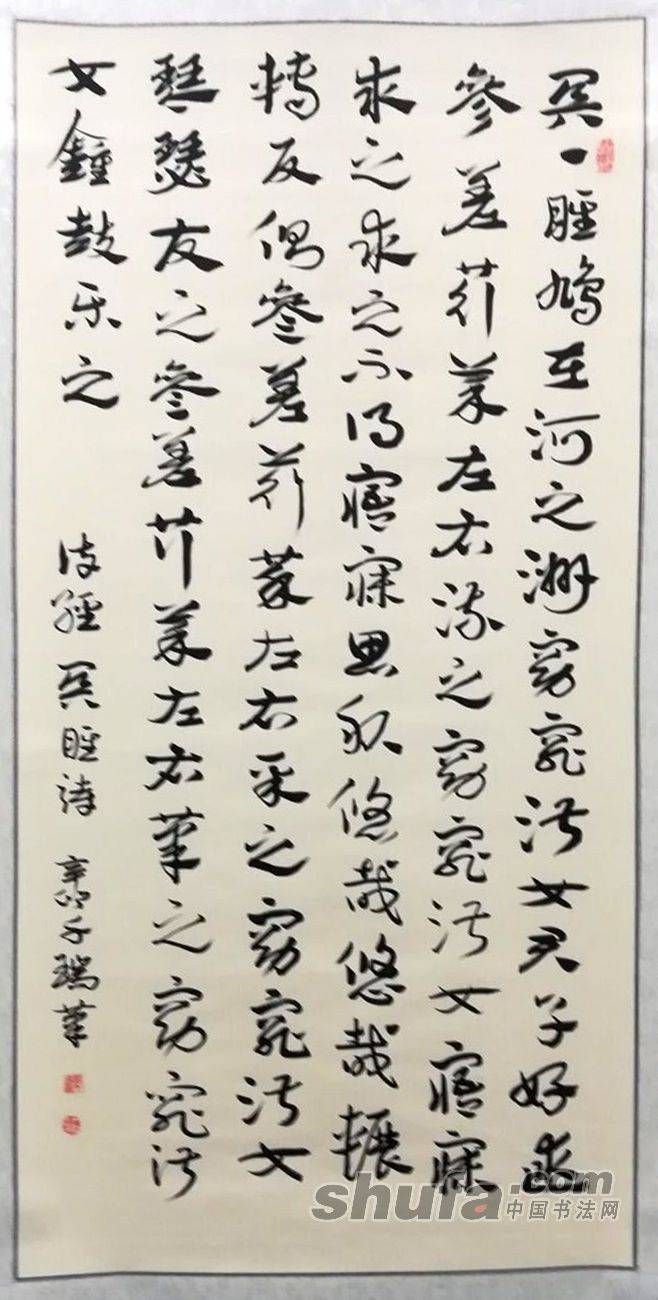 関々雎鳩在河之洲窈窕淑女君子好逑
參差荇菜左右流之窈窕淑女寤寐
求之求之不得寤寐思服悠哉悠哉輾
轉反側參差荇菜左右采之窈窕淑女
琴瑟友之參差荇菜左右芼之窈窕淑
女鐘鼓乐之
诗經関雎詩 辛卯 瑞
shufa.com
中国书法网